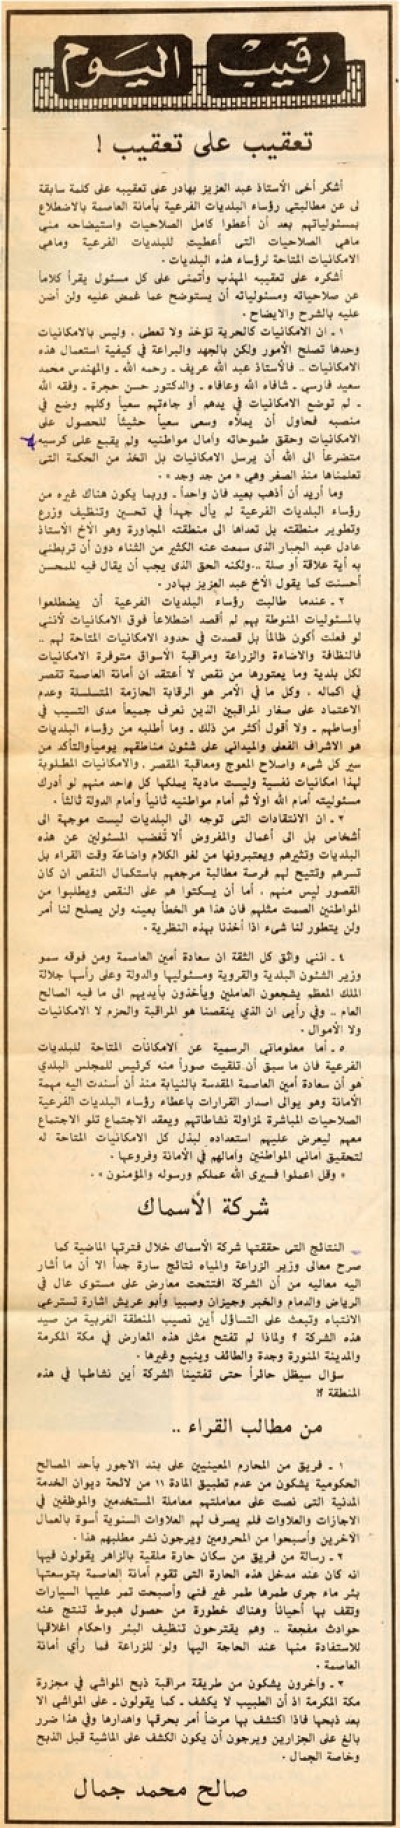 رقيب اليوم
تعقيب على تعقيب !
أشكر أخى الأستاذ عبد العزيز بهادر على تعقيبه على كلمة سابقة
لى عن مطالبتي رؤساء البلديات الفرعية بأمانة العاصمة بالاضطلاع
بمسئولياتهم بعد أن أعطوا كامل الصلاحيات واستيضاحه منى
ماهى الصلاحيات التى أعطيت للبلديات الفرعية وماهى
الامكانيات المتاحة لرؤساء هذه البلديات .
أشكره على تعقيبه المهذب وأتمنى على كل مسئول يقرأ كلاماً
عن صلاحياته ومسئولياته أن يستوضح عما غمض عليه ولن أضن
عليه بالشرح والايضاح .
١ ـ ان الامكانيات كالحرية تؤخذ ولا تعطى ، وليس بالامكانيات
وحدها تصلح الأمور ولكن بالجهد والبراعة في كيفية استعمال هذه
الامكانيات .. فالأستاذ عبد الله عريف ـ رحمه الله ـ والمهندس محمد
سعيد فارسي ـ شافاه الله وعافاه ـ والدكتور حسن حجرة ـ وفقه الله
ـ لم توضع الامكانيات في يدهم أو جاءتهم سعياً وكلهم وضع في
منصبه فحاول أن يملأه وسعى سعياً حثيثاً للحصول على
الامكانيات وحقق طموحاته وآمال مواطنيه ولم يقبع على كرسيه
متضرعاً الى الله أن يرسل الامكانيات بل اتخذ من الحكمة التى
تعلمناها منذ الصغر وهي « من جد وجد » .
وما أريد أن أذهب بعيد فان واحداً ـ وربما يكون هناك غيره من
رؤساء البلديات الفرعية لم يأل جهداً في تحسين وتنظيف وزرع
وتطوير منطقته بل تعداها الى منطقته المجاورة وهو الأخ الأستاذ
عادل عبد الجبار الذى سمعت عنه الكثير من الثناء دون أن تربطني
به أية علاقة أو صلة .. ولكنه الحق الذى يجب أن يقال فيه للمحسن
أحسنت كما يقول الأخ عبد العزيز بهادر .
٢ ـ عندما طالبت رؤساء البلديات الفرعية أن يضطلعوا
بالمسئوليات المنوطة بهم لم أقصد اضطلاعاً فوق الامكانيات لأننى
لو فعلت أكون ظالماً بل قصدت في حدود الامكانيات المتاحة لهم ..
فالنظافة والاضاءة والزراعة ومراقبة الأسواق متوفرة الامكانيات
لكل بلدية وما يعتورها من نقص لا أعتقد ان أمانة العاصمة تقصر
في اكماله ، وكل ما في الأمر هو الرقابة الحازمة المتسلسلة وعدم
الاعتماد على صغار المراقبين الذين نعرف جميعاً مدى التسيب في
أوساطهم ـ ولا أقول أكثر من ذلك ـ وما أطلبه من رؤساء البلديات
هو الاشراف الفعلى والميدانى على شئون مناطقهم يومياً والتأكد من
سير كل شىء واصلاح المعوج ومعاقبة المقصر ، والامكانيات المطلوبة
لهذا امكانيات نفسية وليست مادية يملكها كل واحد منهم لو أدرك
مسئوليته أمام الله اولا ثم أمام مواطنيه ثانياً وأمام الدولة ثالثاً .
٣ ـ ان الانتقادات التى توجه الى البلديات ليست موجهة الى
أشخاص بل الى أعمال والمفروض ألا تُغضب المسئولين عن هذه
البلديات وتثيرهم ويعتبرونها من لغو الكلام واضاعة وقت القراء بل
تسرهم وتتيح لهم فرصة مطالبة مرجعهم باستكمال النقص ان كان
القصور ليس منهم ، أما أن يسكتوا هم على النقص ويطلبوا من
المواطنين الصمت مثلهم فان هذا هو الخطأ بعينه ولن يصلح لنا أمر
ولن يتطور لنا شىء اذا أخذنا بهذه النظرية .
٤ ـ اننى واثق كل الثقة ان سعادة أمين العاصمة ومن فوقه سمو
وزير الشئون البلدية والقروية ومسئوليها والدولة وعلى رأسها جلالة
الملك المعظم يشجعون العاملين ويأخذون بأيديهم الى ما فيه الصالح
العام .. وفي رأيى ان الذي ينقصنا هو المراقبة والحزم لا الامكانيات
ولا الأموال .
٥ ـ أما معلوماتي الرسمية عن الامكانات المتاحة للبلديات
الفرعية فان ما سبق أن تلقيت صوراً منه كرئيس للمجلس البلدي
هو أن سعادة أمين العاصمة المقدسة بالنيابة منذ أن أسندت اليه مهمة
الأمانة وهو يوالى اصدار القرارات باعطاء رؤساء البلديات الفرعية
الصلاحيات المباشرة لمزاولة نشاطاتهم ويعقد الاجتماع تلو الاجتماع
معهم ليعرض عليهم استعداده لبذل كل الامكانيات المتاحة له
لتحقيق أمانى المواطنين وآمالهم في الأمانة وفروعها .
« وقل اعملوا فسيرى الله عملكم ورسوله والمؤمنون » .
شركة الأسماك
النتائج التى حققتها شركة الأسماك خلال فترتها الماضية كما
صرح معالى وزير الزراعة والمياه نتائج سارة جداً الا أن ما أشار
اليه معاليه من أن الشركة افتتحت معارض على مستوى عال في
الرياض والدمام والخبر وجيزان وصبيا وأبو عريش اشارة تسترعي
الانتباه وتبعث على التساؤل أين نصيب المنطقة الغربية من صيد
هذه الشركة ؟ ولماذا لم تفتح مثل هذه المعارض في مكة المكرمة
والمدينة المنورة وجدة والطائف وينبع وغيرها .
سؤال سيظل حائراً حتى تفتينا الشركة أين نشاطها في هذه
المنطقة ؟!
من مطالب القراء ..
١ ـ فريق من المحارم المعينيين على بند الاجور بأحد المصالح
الحكومية يشكون من عدم تطبيق المادة ١١ من لائحة ديوان الخدمة
المدنية التى نصت على معاملتهم معاملة المستخدمين والموظفين في
الاجازات والعلاوات فلم يصرف لهم العلاوات السنوية أسوة بالعمال
الآخرين وأصبحوا من المحرومين ويرجون نشر مطلبهم هذا .
٢ ـ رسالة من فريق من سكان حارة ملقية بالزاهر يقولون فيها
انه كان عند مدخل هذه الحارة التى تقوم أمانة العاصمة بتوسعتها
بئر ماء جرى طمرها طمر غير فني وأصبحت تمر عليها السيارات
وتقف بها أحياناً وهناك خطورة من حصول هبوط تنتج عنه
حوادث مفجعة .. وهم يقترحون تنظيف البئر واحكام اغلاقها
للاستفادة منها عند الحاجة اليها ولو للزراعة فما رأى أمانة
العاصمة .
٣ ـ وآخرون يشكون من طريقة مراقبة ذبح المواشي في مجزرة
مكة المكرمة اذ أن الطبيب لا يكشف ـ كما يقولون ـ على المواشي الا
بعد ذبحها فاذا اكتشف بها مرضاً أمر بحرقها واهدارها وفي هذا ضرر
بالغ على الجزارين ويرجون أن يكون الكشف على الماشية قبل الذبح
وخاصة الجمال .
صالح محمد جمال